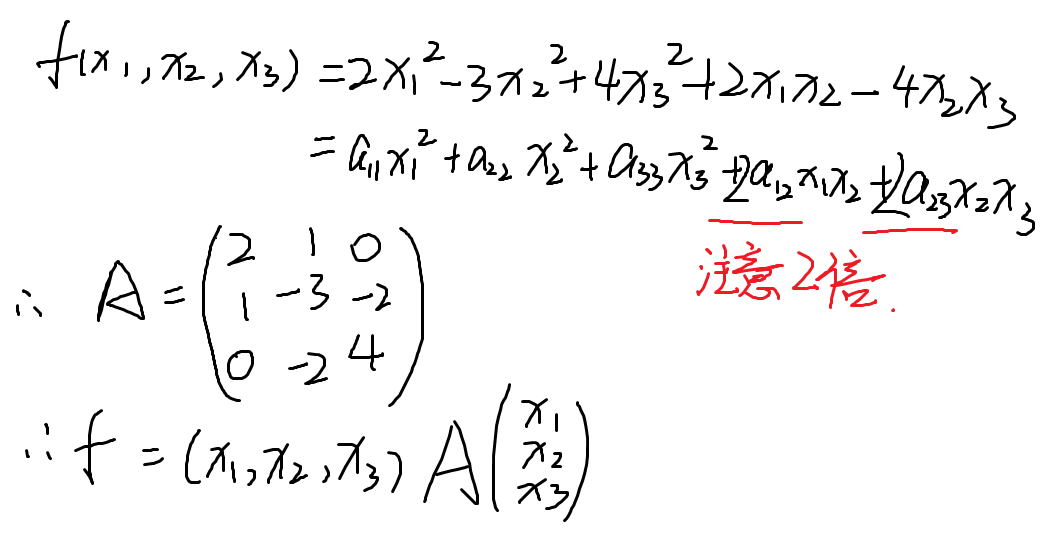 f(x₁, x₂, x₃) = 2x₁² - 3x₂² + 4x₃² + 2x₁x₂ - 4x₂x₃
= a₁₁x₁² + a₂₂x₂² + a₃₃x₃² + 2a₁₂x₁x₂ + 2a₂₃x₂x₃
注意2倍.
2 1 0
∴ A = ( 1 -3 -2 )
0 -2 4
x₁
∴ f = (x₁, x₂, x₃) A ( x₂ )
x₃